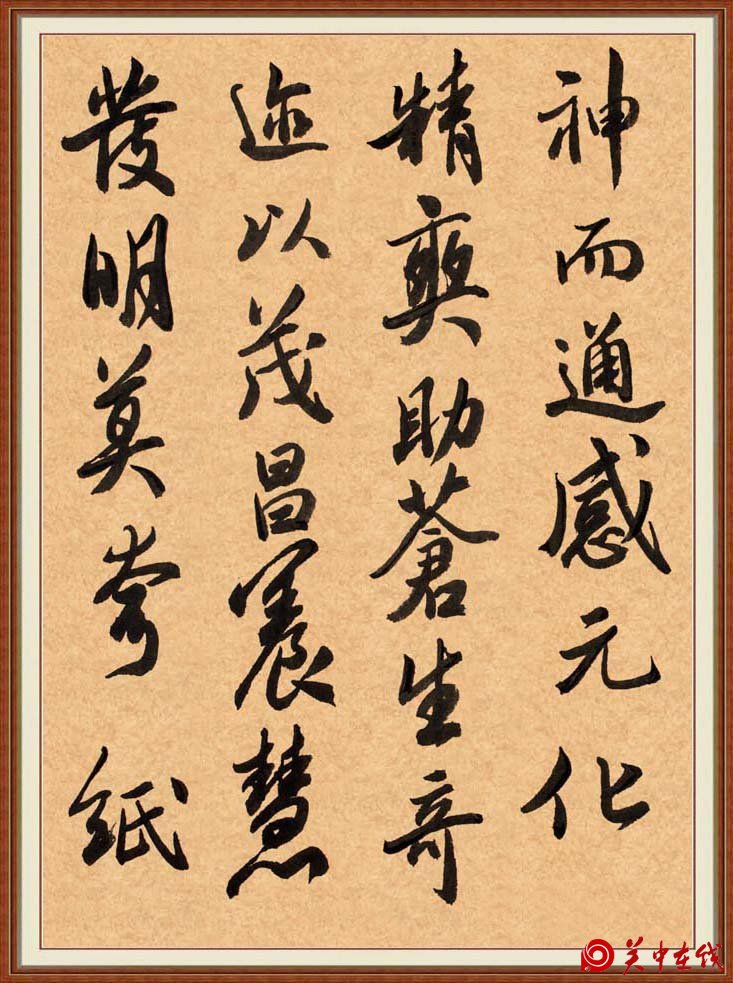 神而通感元化
精爽助蒼生奇
迹以茂昌養慧
發明莫夸紙
关中在线